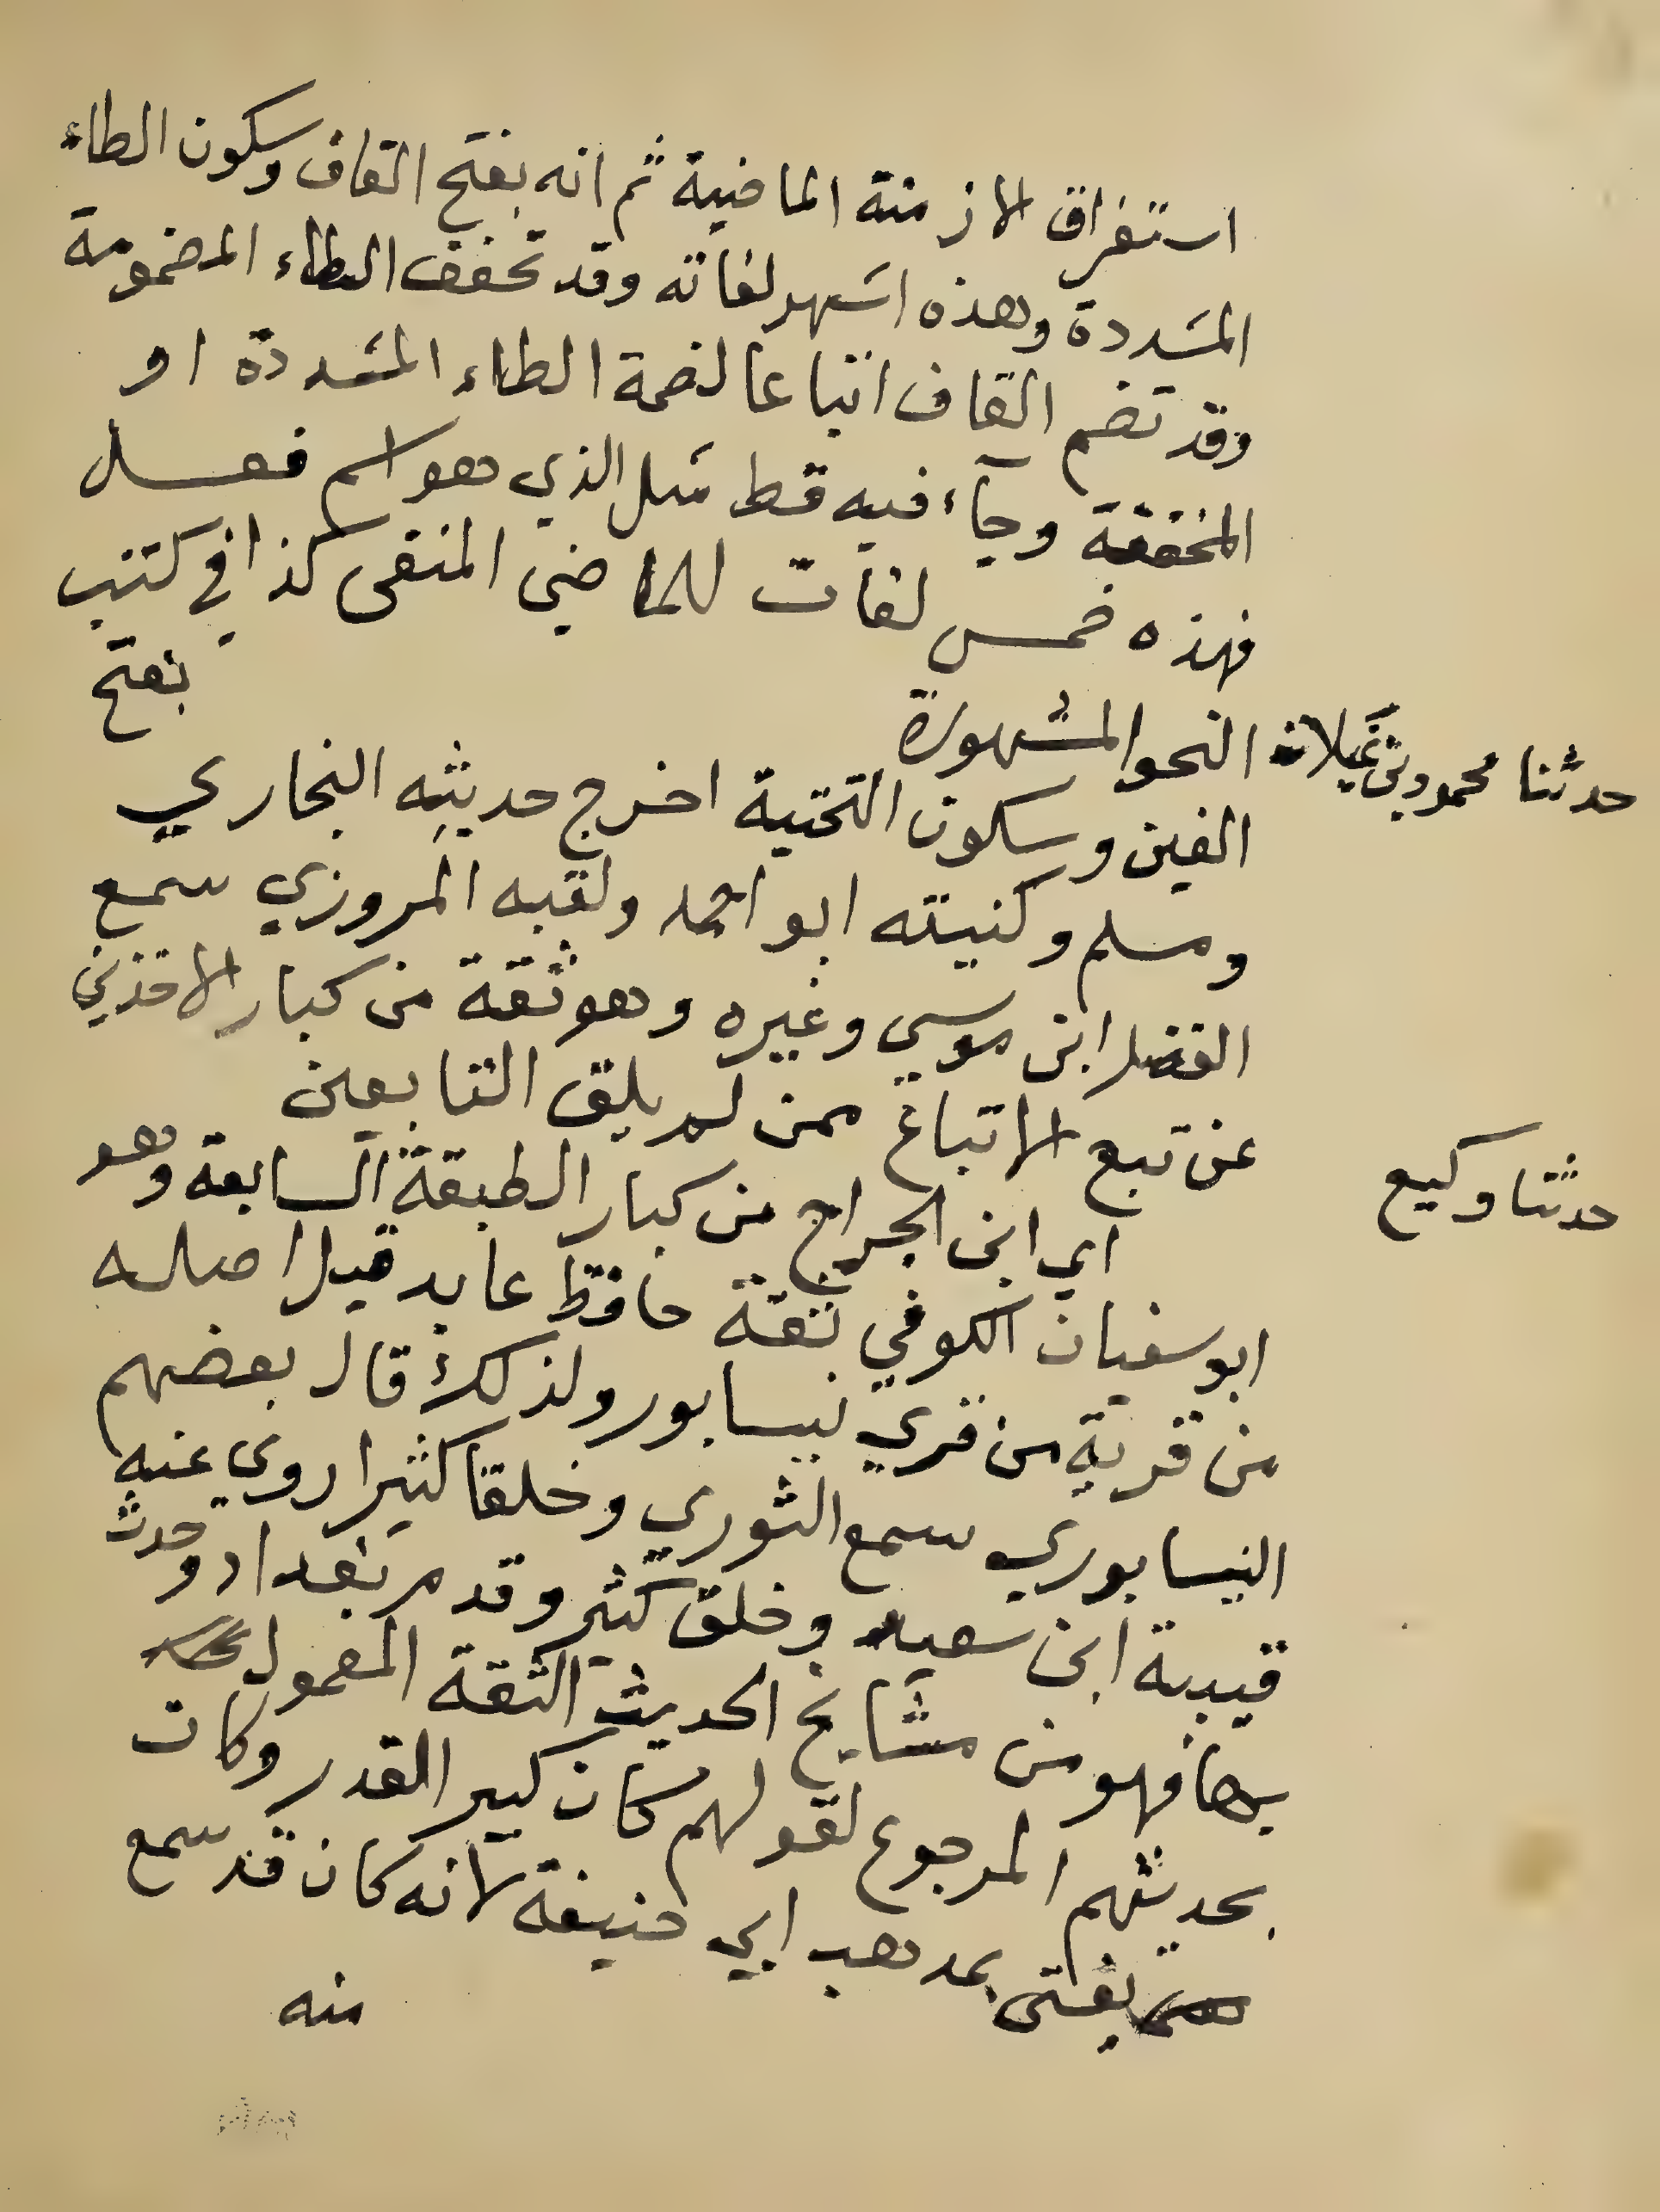 استغراق الازمنة الماضية ثم انه بفتح القاف وسكون الطاء
المشددة وهذه اشهر لغاته وقد تخفف الطاء المضمومة
وقد تضم القاف اتباعا لضمة الطاء المشددة او
المخففة وجآء فيه قط مثل الذي هو اسم فعل
فهذه خمس لغات للماضي المنفى كذا في كتب
النحو المشهورة
حدثنا محمود بن غيلان
بفتح
الغين وسكون التحتية اخرج حديثه البخاري
ومسلم وكنيته ابو احمد ولقبه المروزي سمع
الفضل ابن موسي وغيره وهو ثقة من كبار الاخذين
عن تبع الاتباع ممن لم يلق التابعين
حدثنا وكيع
اي ابن الجراح من كبار الطبقة السابعة وهو
ابو سفيان الكوفي ثقة حافظ عابد قيل اصله
من قرية من قري نيسابور ولذلك قال بعضهم
النيسابوري سمع الثوري وخلقا كثيرا روى عنه
قتيبة ابن سعيد وخلق كثير وقدم بغداد وحدث
بها فهو من مشايخ الحديث الثقة المعمول
بحديثهم المرجوع لقولهم كان كبير القدر وكان
يفتى بمذهب ابي حنيفة لانه كان قد سمع
منه